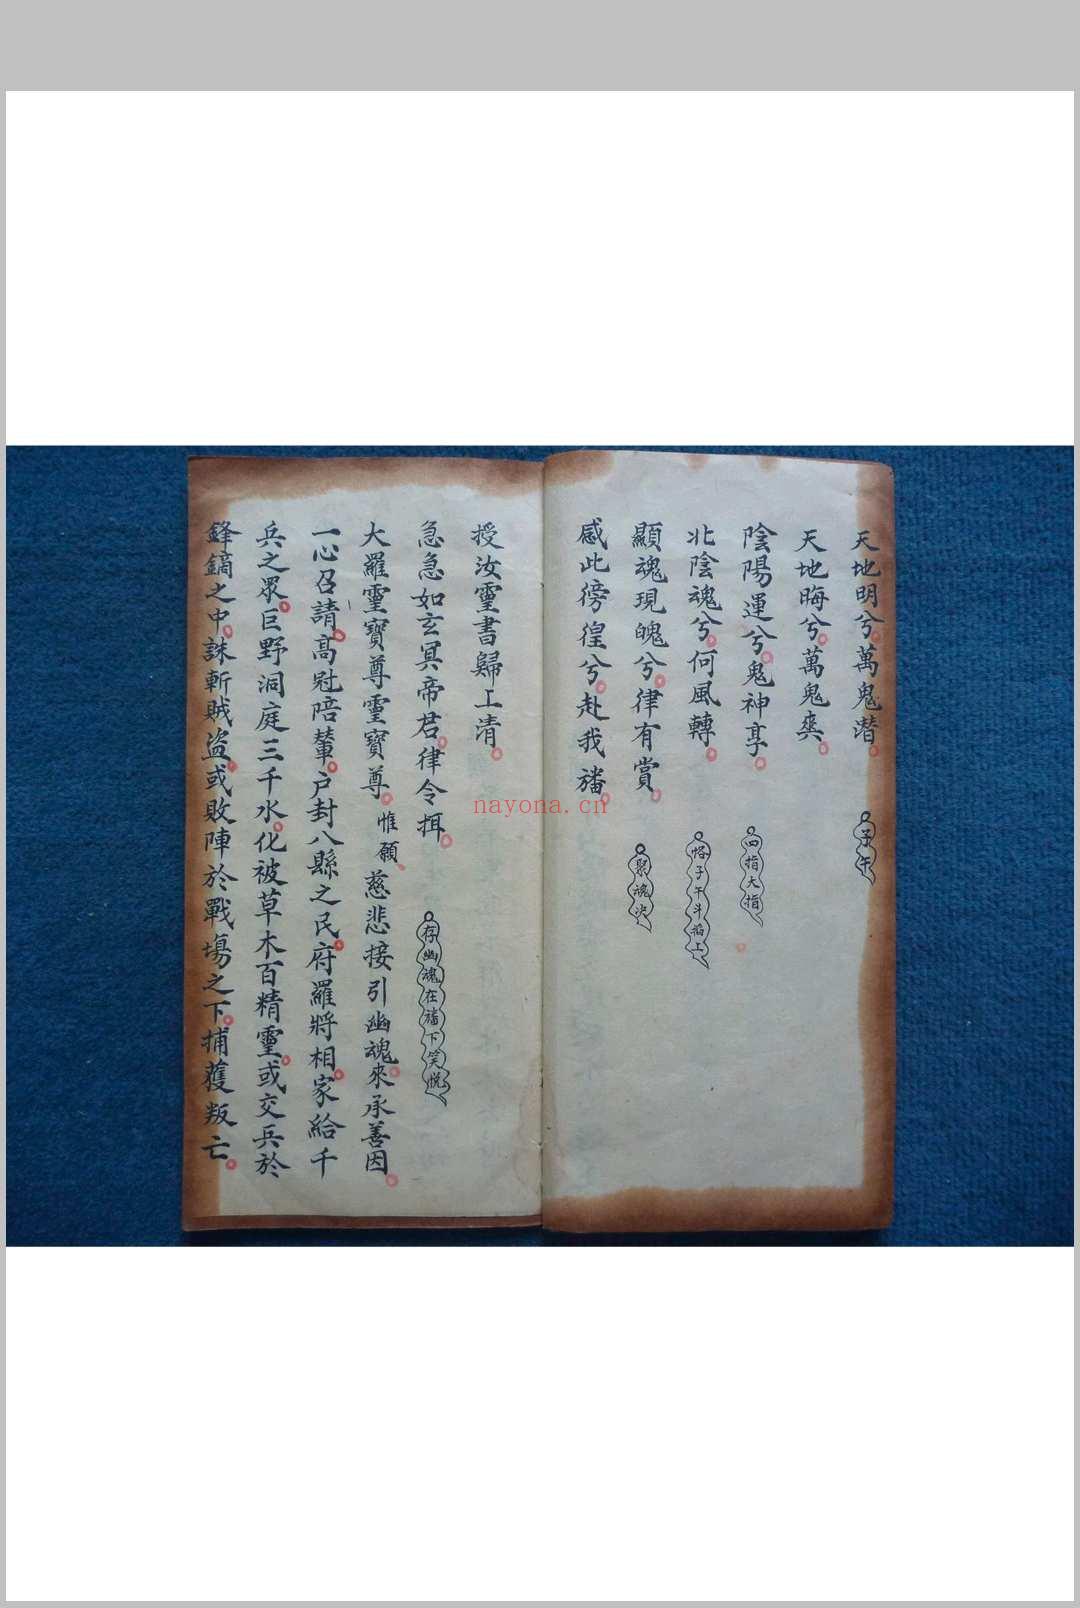 天地明兮萬鬼潛 子午
天地晦兮萬鬼奕
陰陽運兮鬼神享 四指大指
北陰魂兮何風轉 恪子午斗掐上
顯魂現魄兮律有賞 聚魂决
感此徬徨兮赴我旛
授汝靈書歸上清
急急如玄冥帝君律令揖 存幽魂在旛下笑悅
大羅靈寶尊靈寶尊惟願慈悲接引幽魂來承善因
一心召請高冠陪輦戶封八縣之民府羅將相家給千
兵之眾巨野洞庭三千水化被草木百精靈或交兵於
鋒鏑之中誅斬賊盜或敗陣於戰場之下捕獲叛亡
nayona.cn